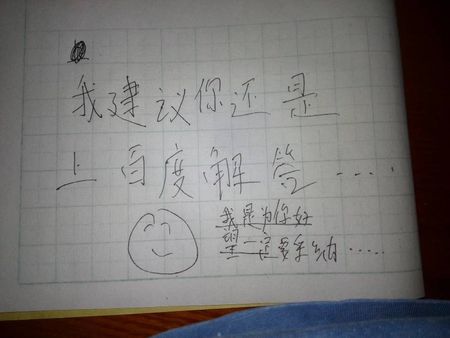 我建议你还是
上百度解答....
我是为你好
望一定要采纳.....